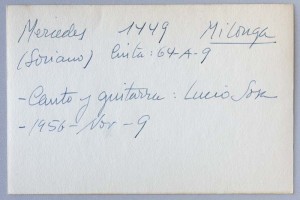 Mercedes 1449 Milonga
(Soriano) Cinta: 64-A-9
-Canto y guitarra: Lucio Sosa
-1956-Nov-9